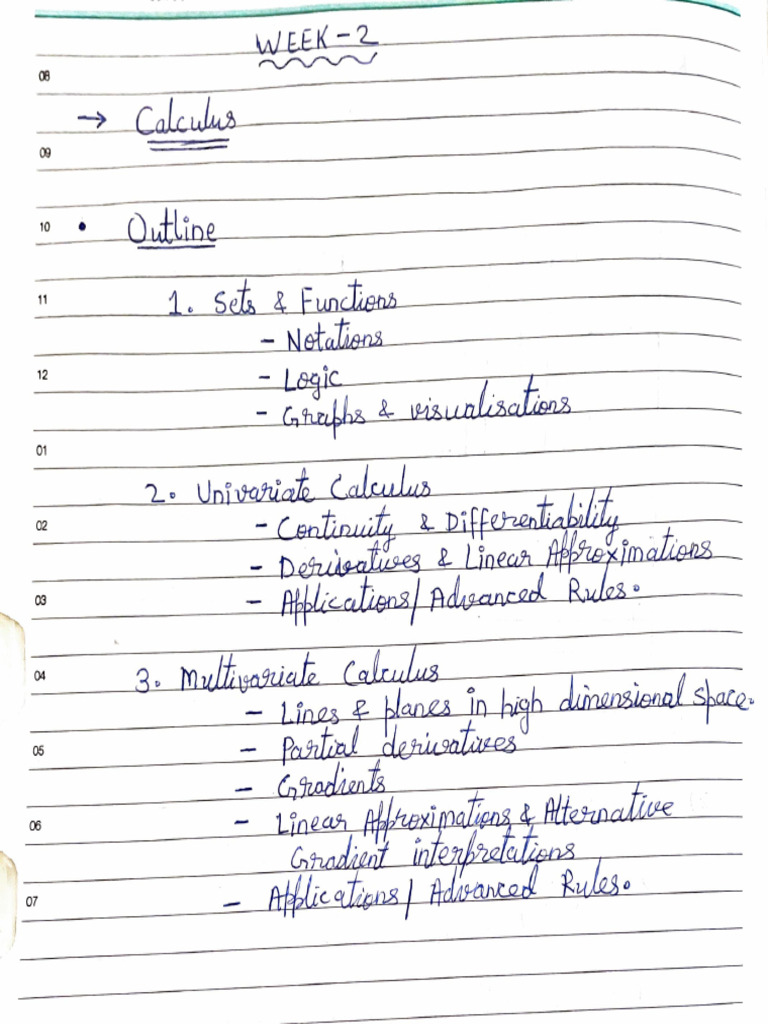 WEEK-2
08
→ Calculus
09
10 • Outline
11 1. Sets & Functions
- Notations
12 - Logic
- Graphs & visualisations
01
2. Univariate Calculus
02 - Continuity & Differentiability
- Derivatives & Linear Approximations
03 - Applications/Advanced Rules.
04 3. Multivariate Calculus
- Lines & planes in high dimensional space.
05 - Partial derivatives
- Gradients
06 - Linear Approximations & Alternative
Gradient interpretations
07 - Applications/Advanced Rules.